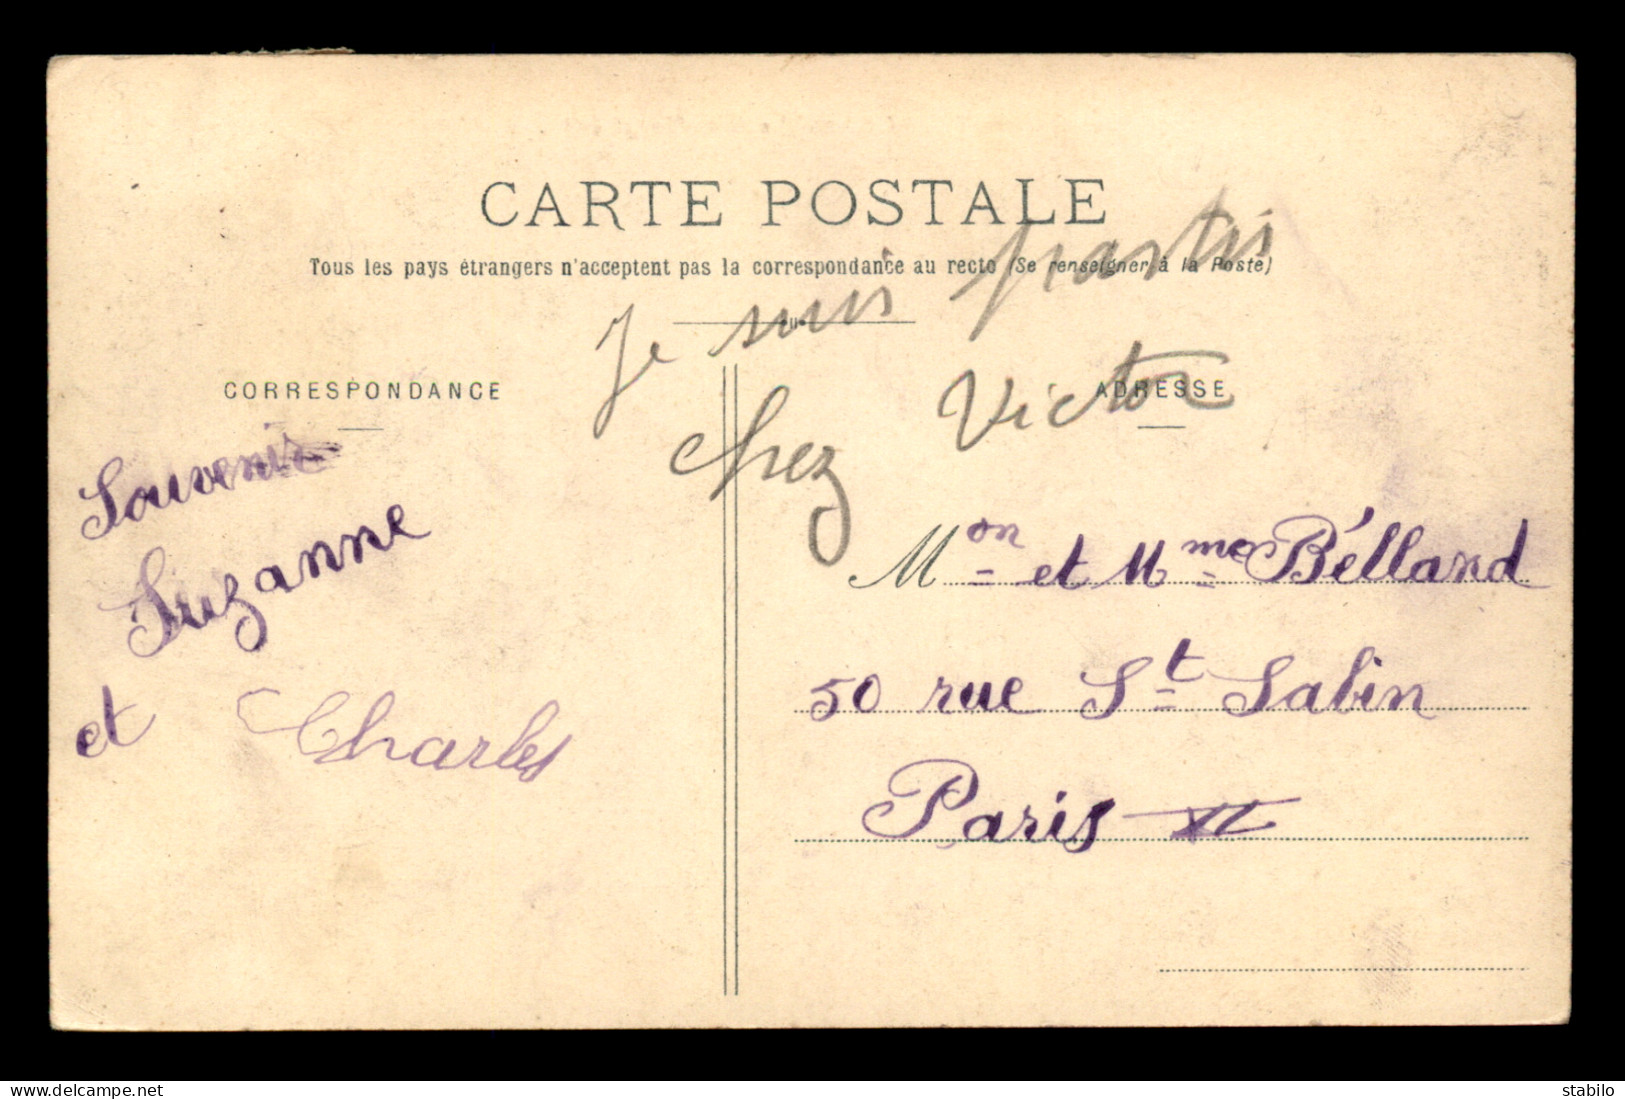 CARTE POSTALE
Tous les pays étrangers n'acceptent pas la correspondance au recto (Se renseigner à la Poste)
Je suis partis
chez Victor
CORRESPONDANCE
ADRESSE
Souvenir
Suzanne
et Charles
Mon et Mme Bélland
50 rue St Sabin
Paris XI
delcampe.net
stabilo